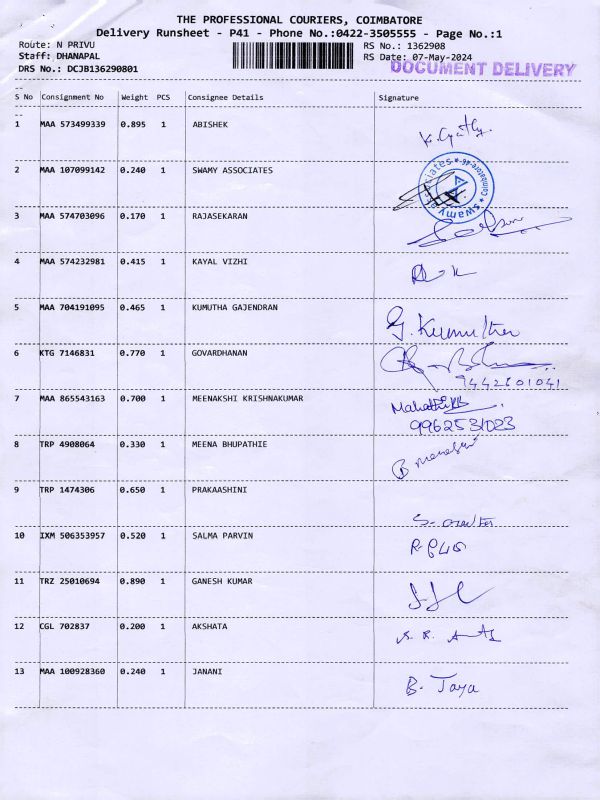 THE PROFESSIONAL COURIERS, COIMBATORE
Delivery Runsheet - P41 - Phone No.:0422-3505555 - Page No.:1
Route: N PRIVU RS No.: 1362908
Staff: DHANAPAL RS Date: 07-May-2024
DRS No.: DCJB136290801 DOCUMENT DELIVERY
S No Consignment No Weight PCS Consignee Details Signature
1 MAA 573499339 0.895 1 ABISHEK
2 MAA 107099142 0.240 1 SWAMY ASSOCIATES
swamy associates * Coimbatore-46 *
3 MAA 574703096 0.170 1 RAJASEKARAN
4 MAA 574232981 0.415 1 KAYAL VIZHI
5 MAA 704191095 0.465 1 KUMUTHA GAJENDRAN G. Kumutha
6 KTG 7146831 0.770 1 GOVARDHANAN
9442601041
7 MAA 865543163 0.700 1 MEENAKSHI KRISHNAKUMAR
9962531023
8 TRP 4908064 0.330 1 MEENA BHUPATHIE
9 TRP 1474306 0.650 1 PRAKAASHINI
10 IXM 506353957 0.520 1 SALMA PARVIN
11 TRZ 25010694 0.890 1 GANESH KUMAR
12 CGL 702837 0.200 1 AKSHATA
13 MAA 100928360 0.240 1 JANANI B. Jaya